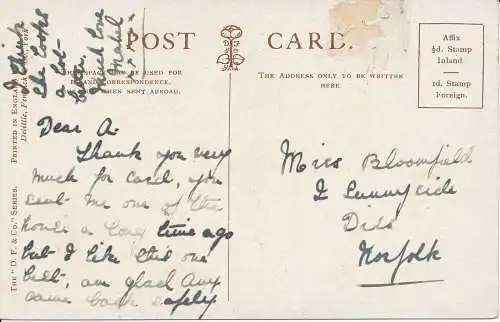 POST CARD.
THIS SPACE MAY BE USED FOR
CORRESPONDENCE
WHEN SENT ABROAD.
THE ADDRESS ONLY TO BE WRITTEN
HERE
Affix
½d. Stamp
Inland
1d. Stamp
Foreign.
THE "D. F. & Co." SERIES.
PRINTED IN ENGLAND
Delittle, Fenwick
Dear A.
Thank you very
much for card, you
sent me one of the
house a long time ago
but I like this one
best, am glad Amy
came back safely
I think
she looks
a lot
much love
Mabel
Miss Bloomfield
2 Sunnyside
Diss
Norfolk